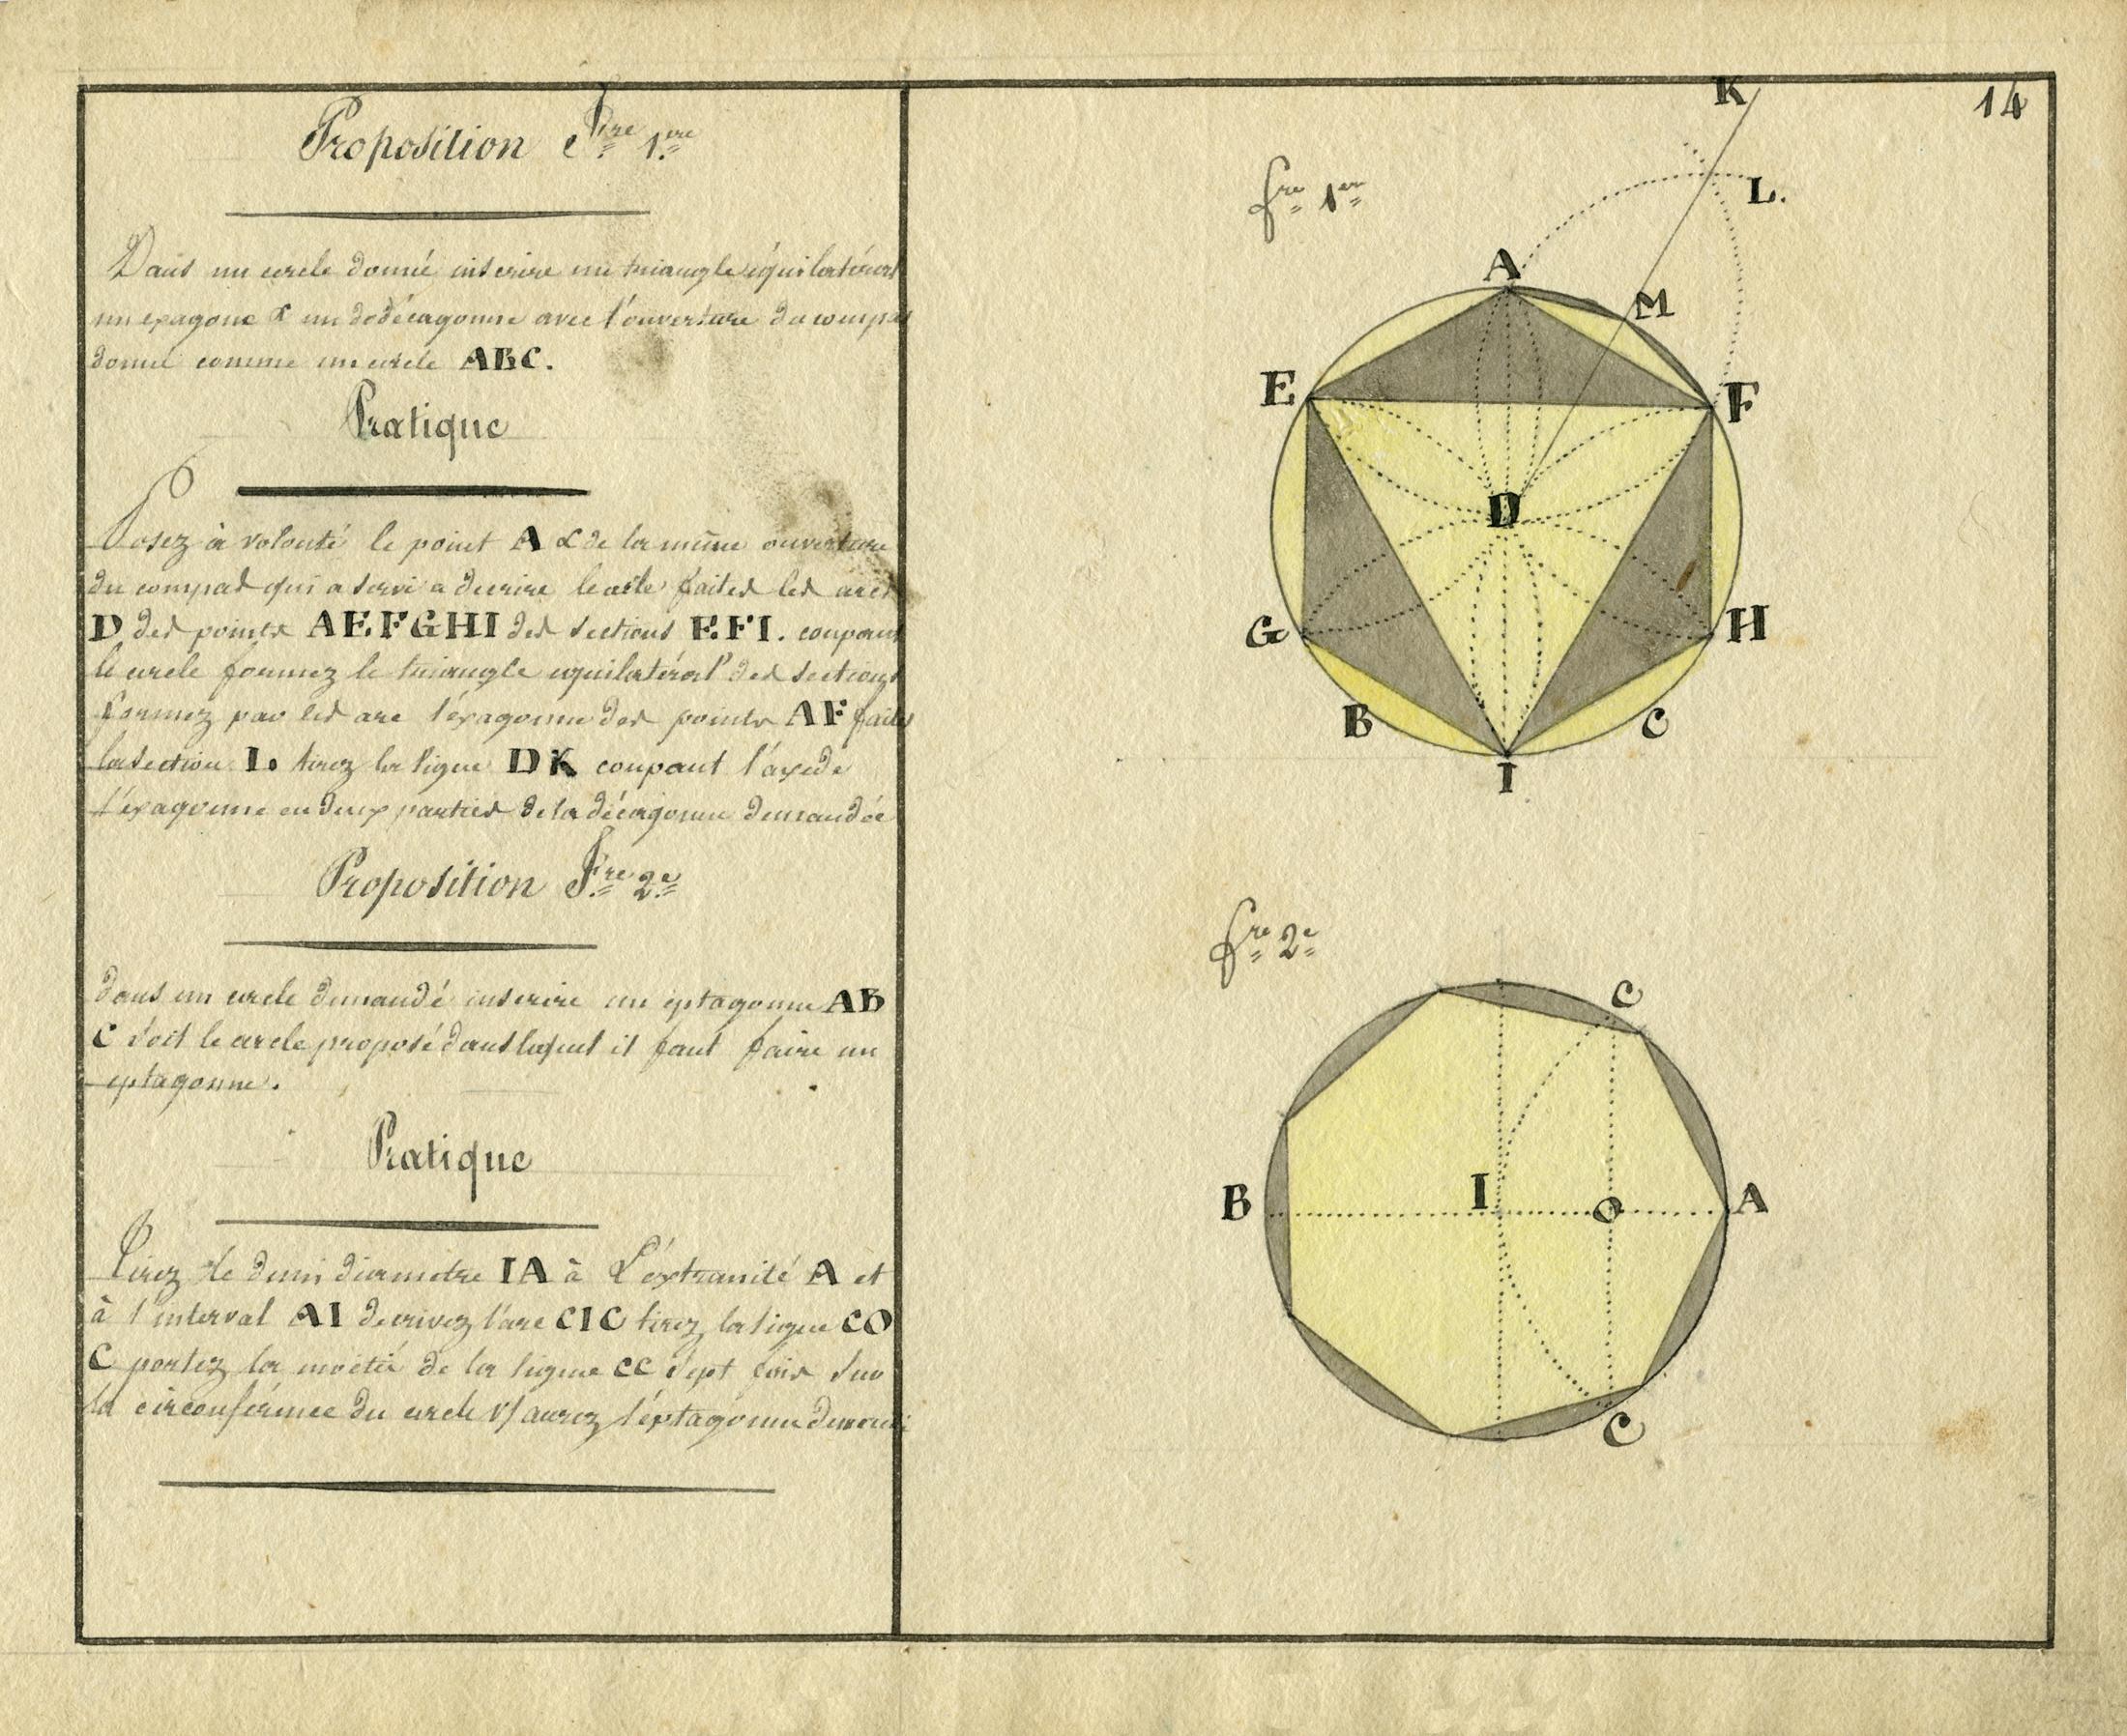 Proposition Fre 1ere
Dans un cercle donné inscrire un triangle équilatéral
un exagone & un dodécagonne avec l'ouverture du compas
donné comme un cercle ABC.
Pratique
Posez à volonté le point A & de la même ouverture
du compas qui a servi a decrire le cercle faites les arcs
D des points AEFGHI des sections EFI. coupant
le cercle formez le triangle equilatéral des sections
formez par les arc l'éxagonne des points AF faites
la section L. tirez la ligne DK coupant l'axe de
l'éxagonne en deux parties de la décagonne demandée
Proposition Fre 2e
dans un cercle demandé inscrire un eptagonne AB
C soit le cercle proposé dans lequel il faut faire un
eptagonne.
Pratique
Tirez le demi diametre IA à L'éxtrémité A et
à l'interval AI decrivez l'arc CIC tirez la ligne CO
C portez la moitié de la ligne CC sept fois sur
la circonférence du cercle v/ aurez l'éptagonne
14
fre 1er
K
L.
A
M
E
F
D
G
H
B
C
I
fre 2e
C
B
I
O
A
C